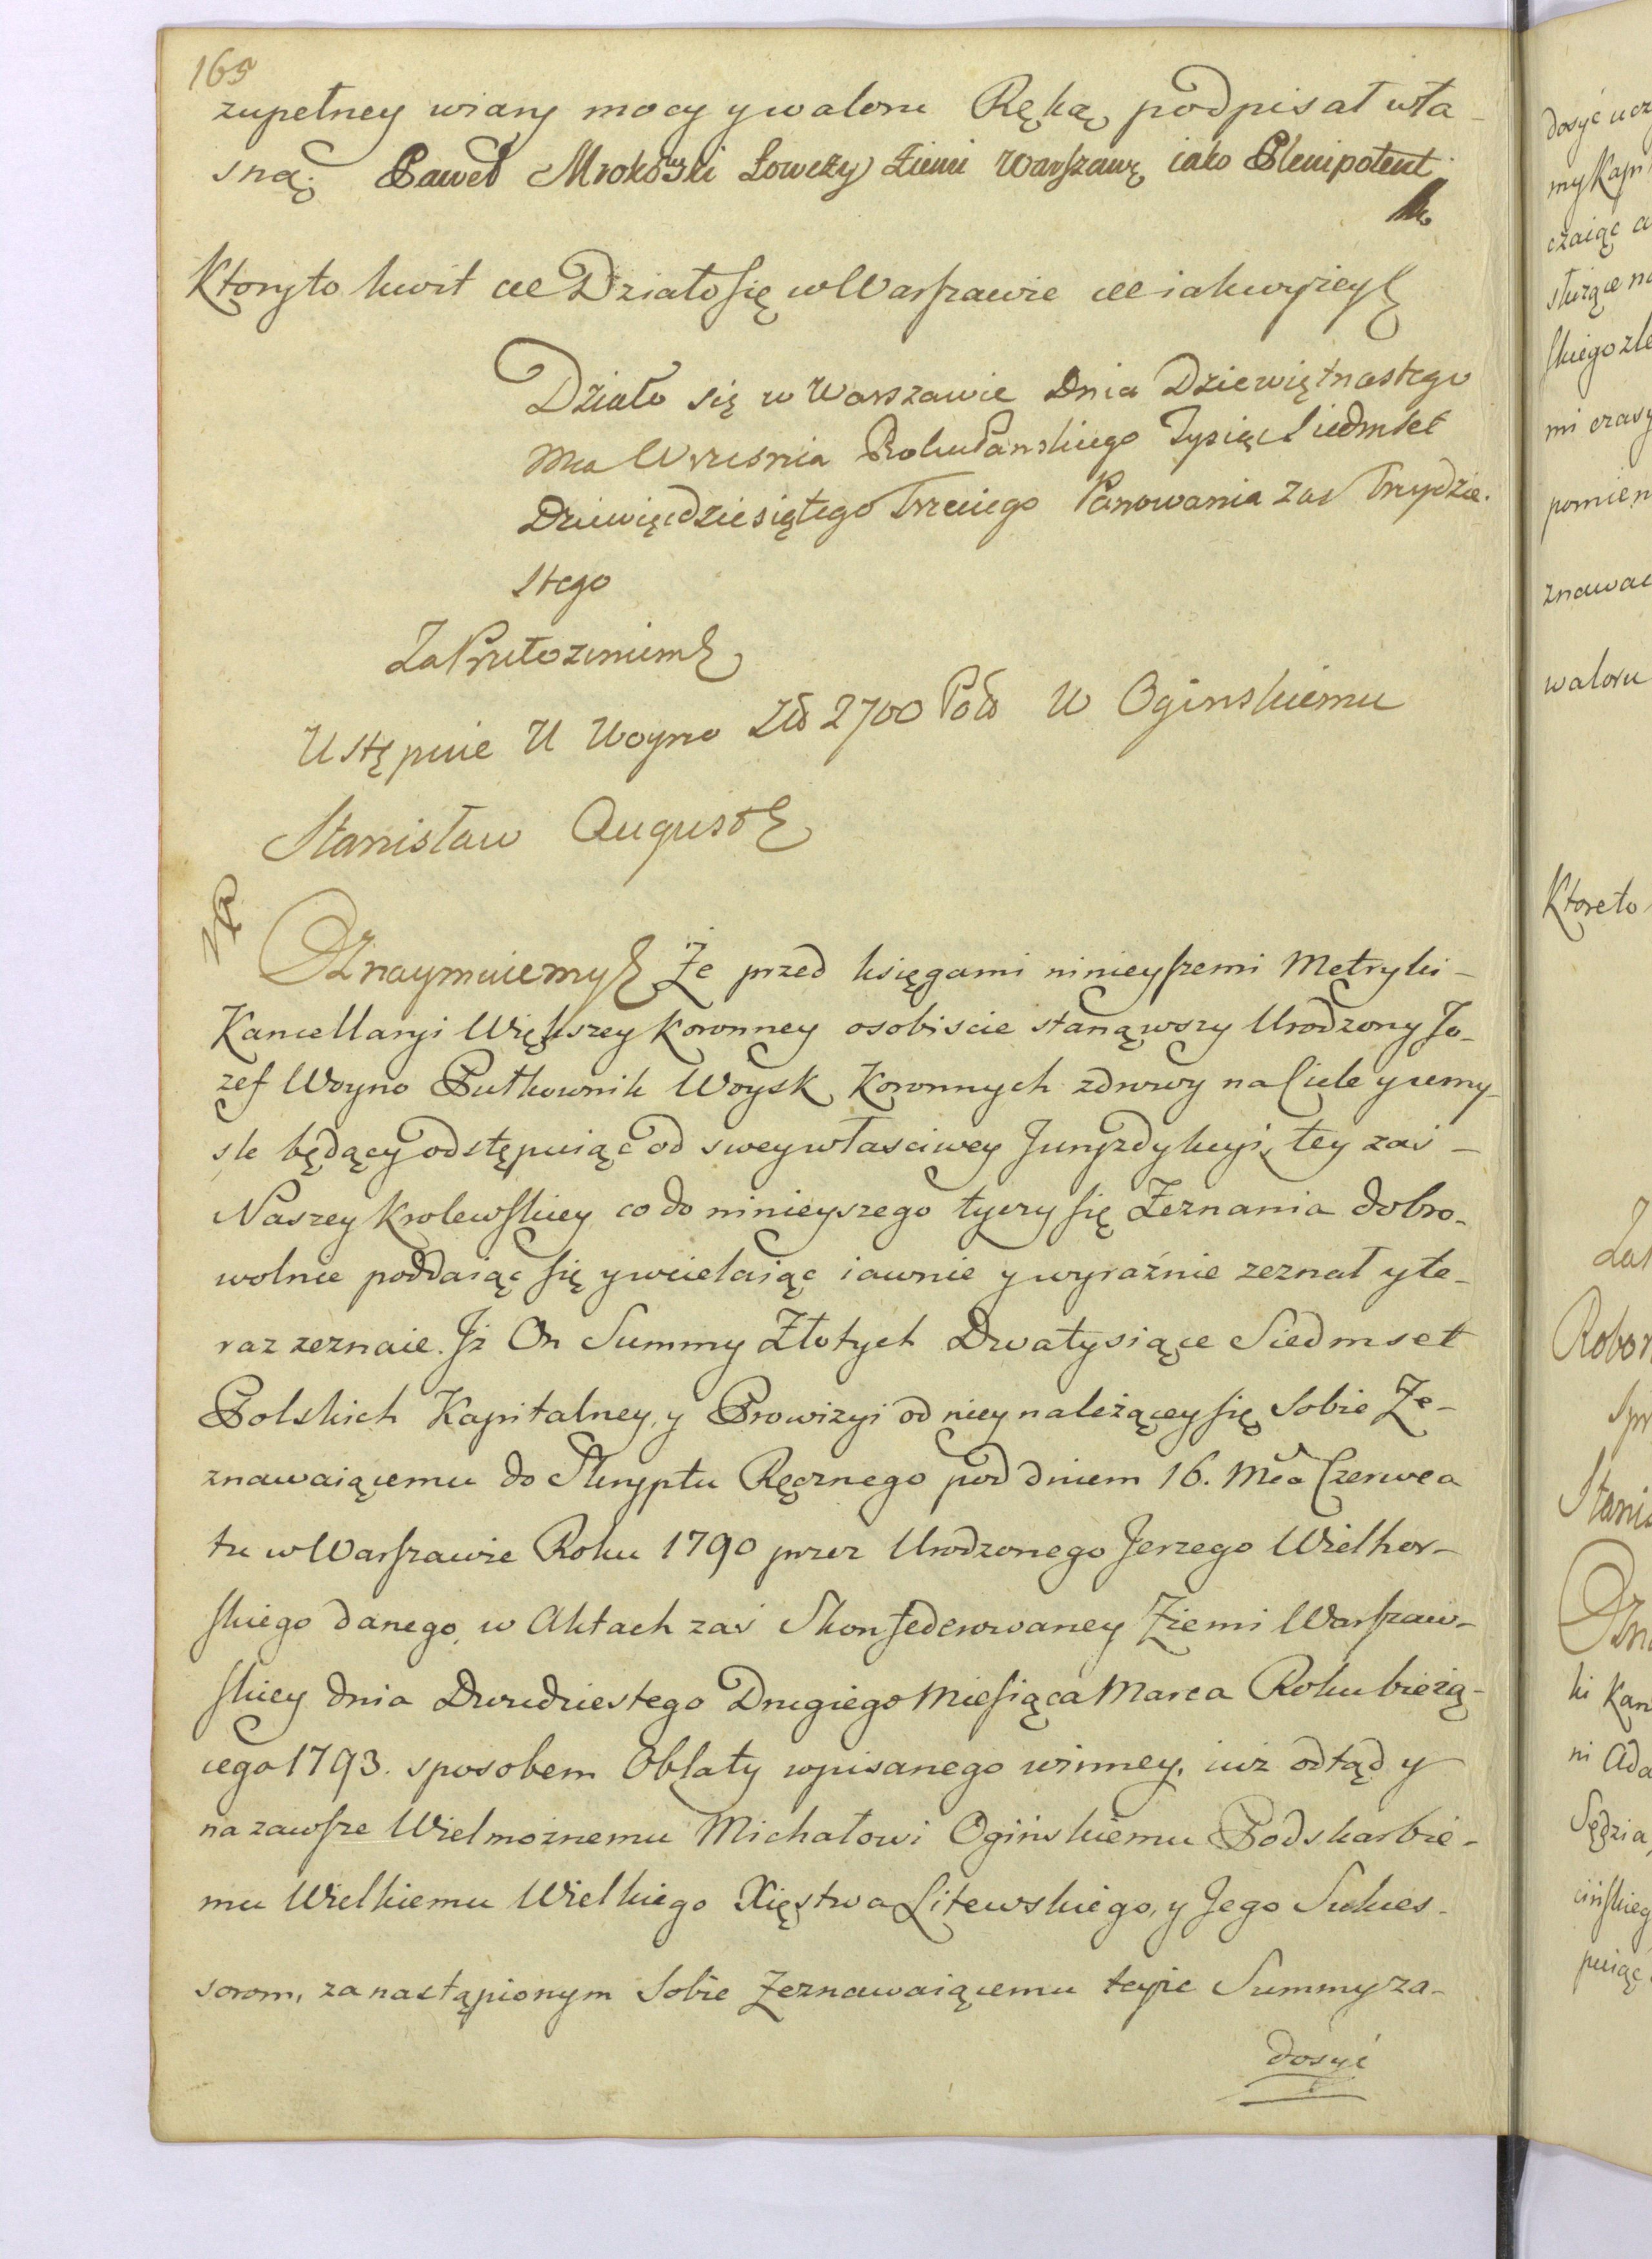 165
zupełney wiary mocy y waloru Ręką podpisał wła-
sną. Paweł Mrokowski Łowczy Ziemi Warszaws. iako Plenipotent
Ktory to kwit etc Działo się w Warszawie etc iak wyżey
Działo się w Warszawie Dnia Dziewiętnastego
Mca Wrzesnia Roku Panskiego Tysiąc Siedmset
Dziewięćdziesiątego Trzeciego Panowania Zas Trzydzie.
stego
Za Przełozeniem
Ustępuie U Woyno Zł 2700 Pol W Oginskiemu
Stanisław August
Oznaymuiemy Że przed księgami ninieyszemi Metryki
Kancellaryi Większey Koronney osobiscie stanąwszy Urodzony Jo-
zef Woyno Pułkownik Woysk Koronnych zdrowy na Ciele y umy-
sle będący odstępuiąc od swey własciwey Juryzdykcyi, tey zaś
Naszey Krolewskiey co do ninieyszego tyczy się Zeznania dobro-
wolnie poddaiąc się y wcielaiąc iawnie y wyraźnie zeznał y te-
raz zeznaie. Jż On Summy Złotych Dwatysiące Siedmset
Polskich Kapitalney, y Prowizyi od niey należącey się Sobie Ze-
znawaiącemu do Skryptu Ręcznego pod dniem 16. Mca Czerwca
tu w Warszawie Roku 1790 przez Urodzonego Jerzego Wielhor-
skiego danego, w Aktach zaś Skonfederowaney Ziemi Warszaw-
skiey dnia Dwudziestego Drugiego Miesiąca Marca Roku bieżą-
cego 1793. sposobem Oblaty wpisanego winney, iuż odtąd y
na zawsze Wielmożnemu Michałowi Ogińskiemu Podskarbie-
mu Wielkiemu Wielkiego Xięstwa Litewskiego, y Jego Sukces-
sorom, za nastąpionym Sobie Zeznawaiącemu teyże Summy za-
dosyć
dosyć ucz
my Kapi
czaiąc a
służące na
skiego zle
mi czasy
pomien
znawai
waloru
Ktore to
Za
Robor
Spr
Stanis
Ozna
ki Kan
ni Ada
Sędzia
cińskieg
puiąc